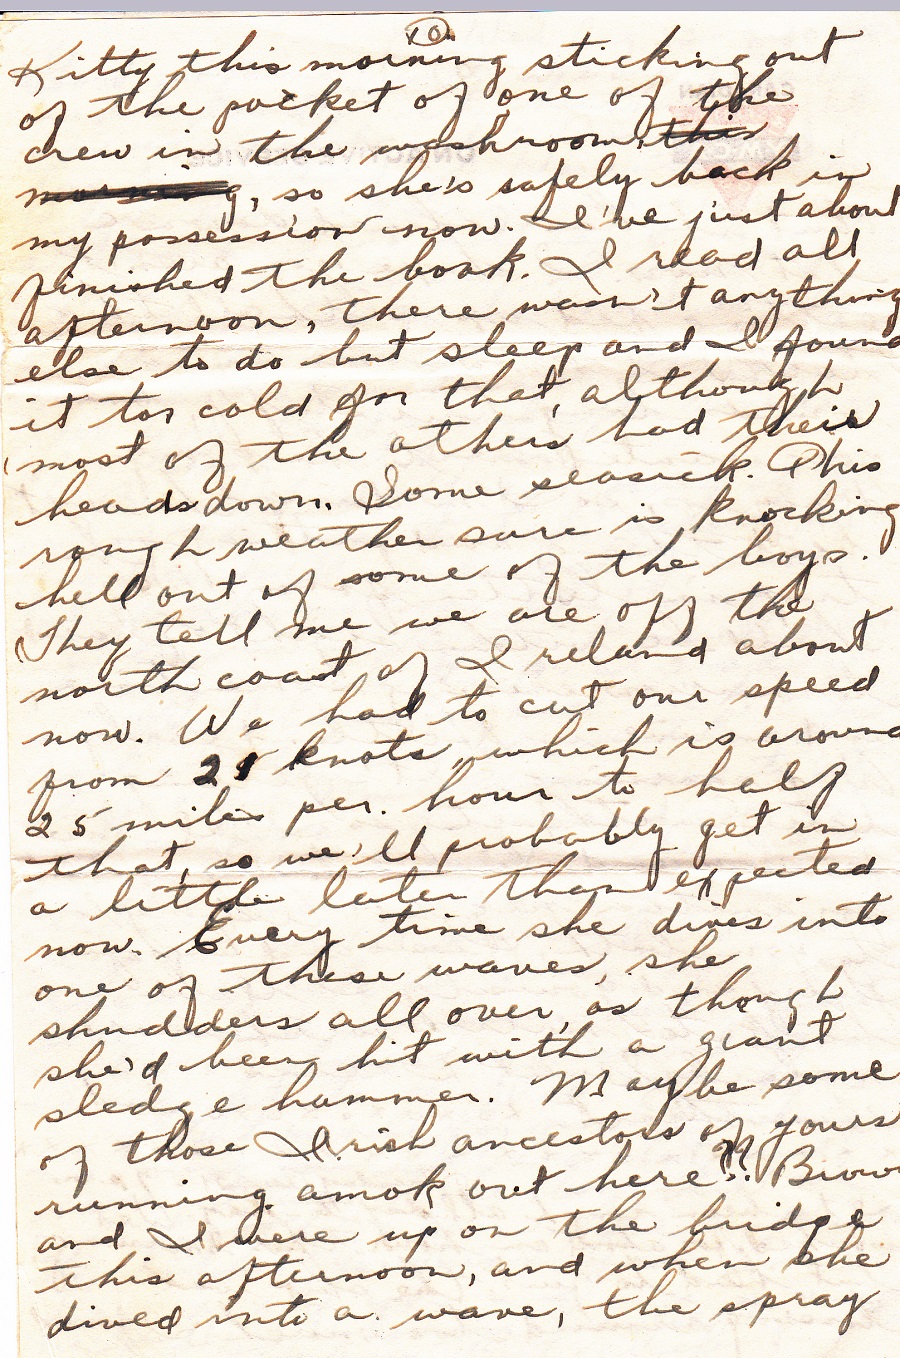 10
Kitty this morning sticking out
of the pocket of one of the
crew in the washroom, this
morning, so she's safely back in
my possession now. I've just about
finished the book. I read all
afternoon, there wasn't anything
else to do but sleep and I found
it too cold for that, although
most of the others had their
heads down. Some seasick. This
rough weather sure is knocking
hell out of some of the boys.
They tell me we are off the
north coast of Ireland about
now. We had to cut our speed
from 21 knots, which is around
25 miles per. hour to half
that, so we'll probably get in
a little later than expected
now. Every time she dives into
one of these waves, she
shudders all over, as though
she'd been hit with a giant
sledge hammer. Maybe some
of those Irish ancestors of yours
running amok out here?? Brown
and I were up on the bridge
this afternoon, and when she
dived into a wave, the spray